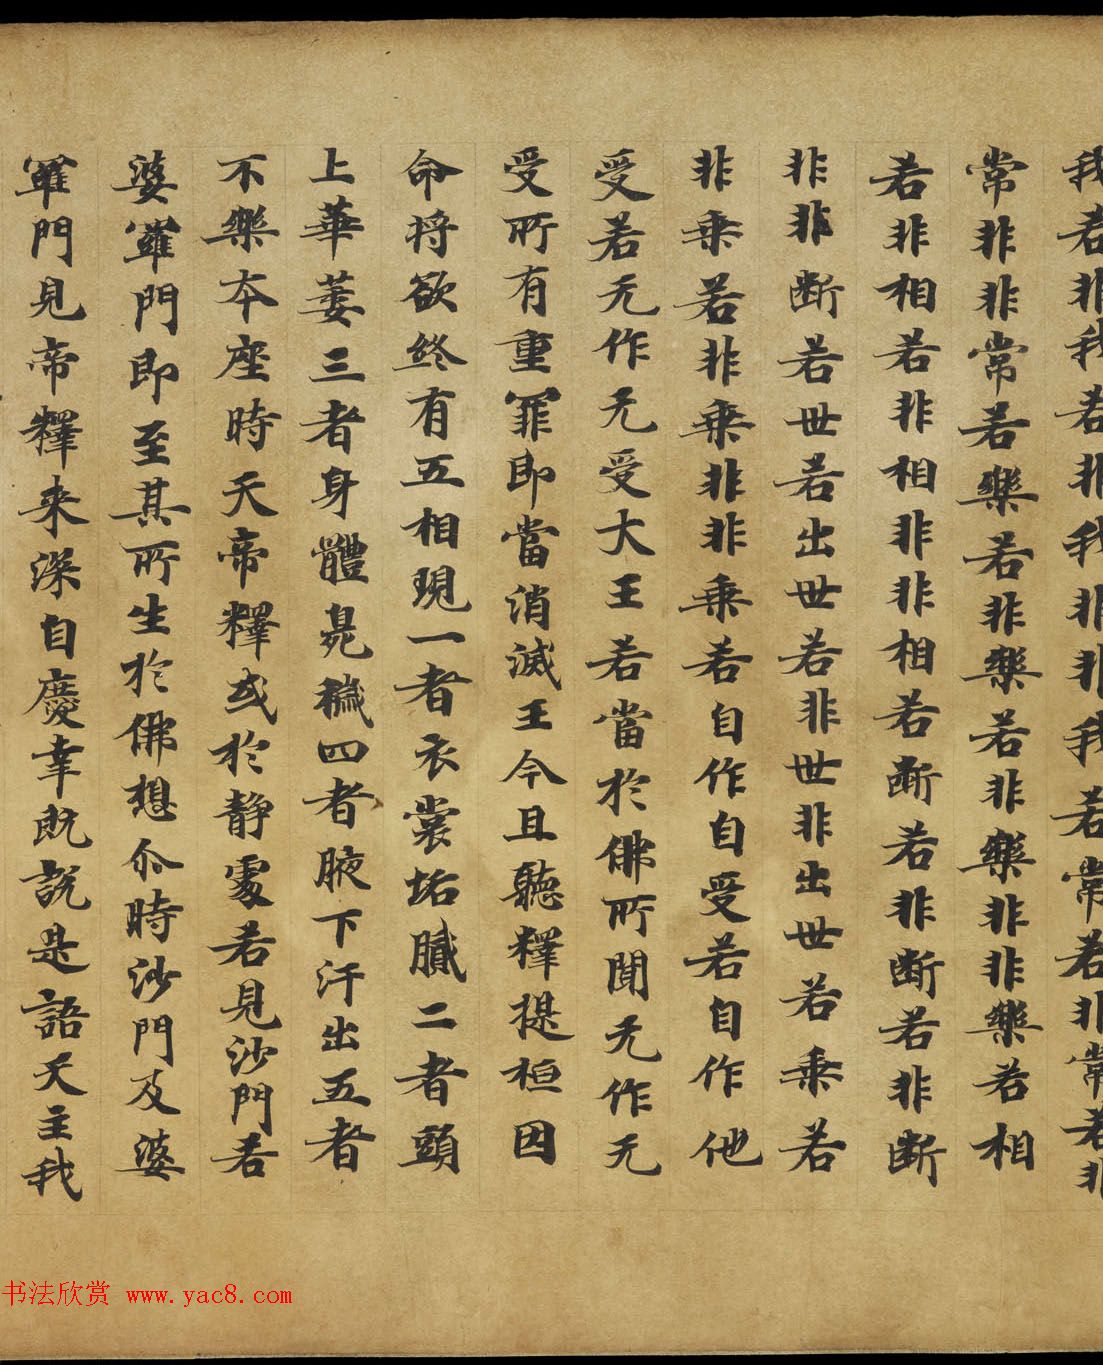 我若非我若非我非非我若常若非常若非
常非非常若樂若非樂若非樂非非樂若相
若非相若非相非非相若断若非断若非断
非非断若世若出世若非世非出世若乘若
非乘若非乘非非乘若自作自受若自作他
受若无作无受大王若當於佛所聞无作无
受所有重罪即當消滅王今且聽釋提桓因
命将欲終有五相現一者衣裳垢膩二者頭
上華萎三者身體臭穢四者腋下汗出五者
不樂本座時天帝釋或於静處若見沙門若
婆羅門即至其所生於佛想尒時沙門及婆
羅門見帝釋来深自慶幸既說是語天主我
书法欣赏 www.yac8.com